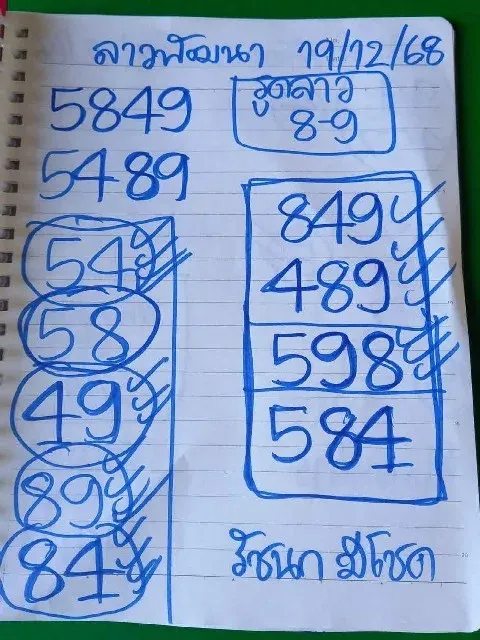 ลาวพัฒนา 19/12/68
5849
รูดลาว
8-9
5489
54
58
49
89
84
849
489
598
584
รัชนก มีโชค